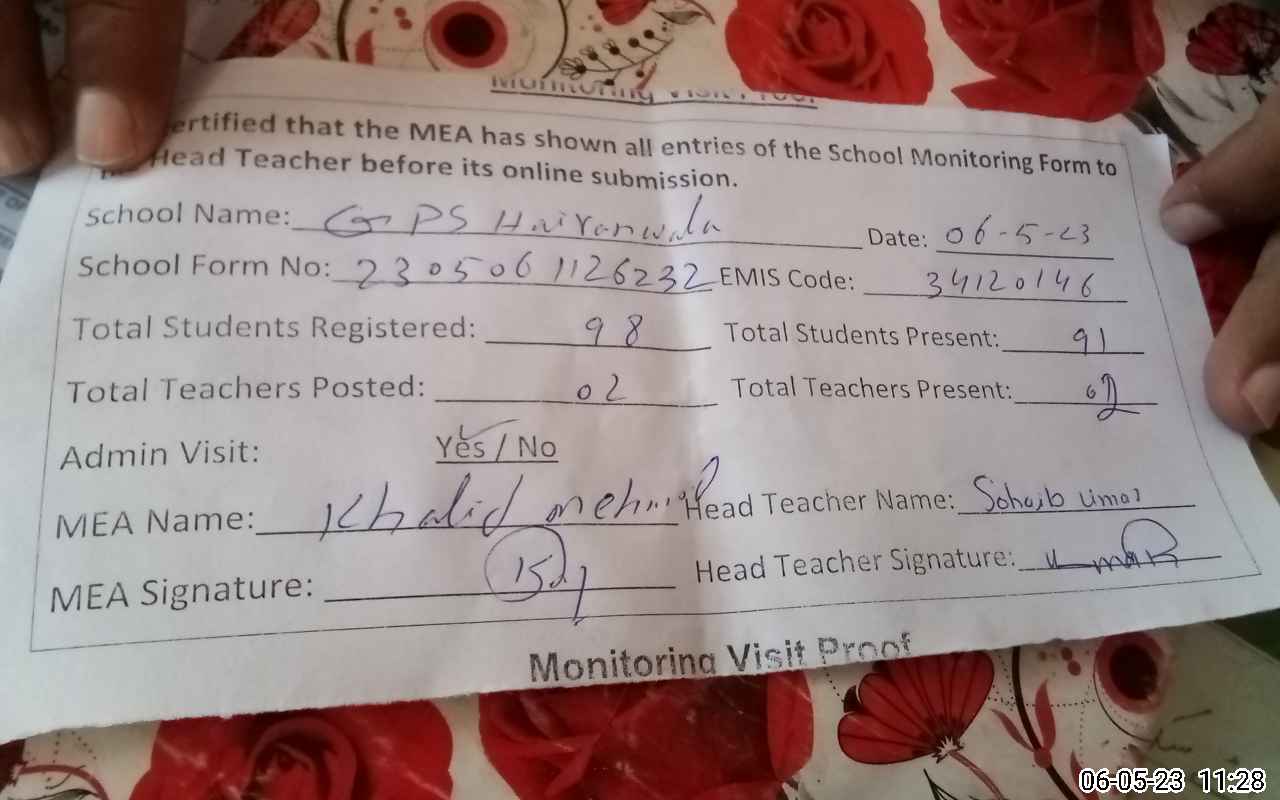 Monitoring Visit Proof
ertified that the MEA has shown all entries of the School Monitoring Form to
Head Teacher before its online submission.
School Name: GPS Hairanwala Date: 06-5-23
School Form No: 2305061126232 EMIS Code: 34120146
Total Students Registered: 98 Total Students Present: 91
Total Teachers Posted: 02 Total Teachers Present: 02
Admin Visit: Yes / No
MEA Name: Khalid Head Teacher Name: Sohaib Umar
MEA Signature: Head Teacher Signature: Umar
Monitoring Visit Proof
06-05-23 11:28